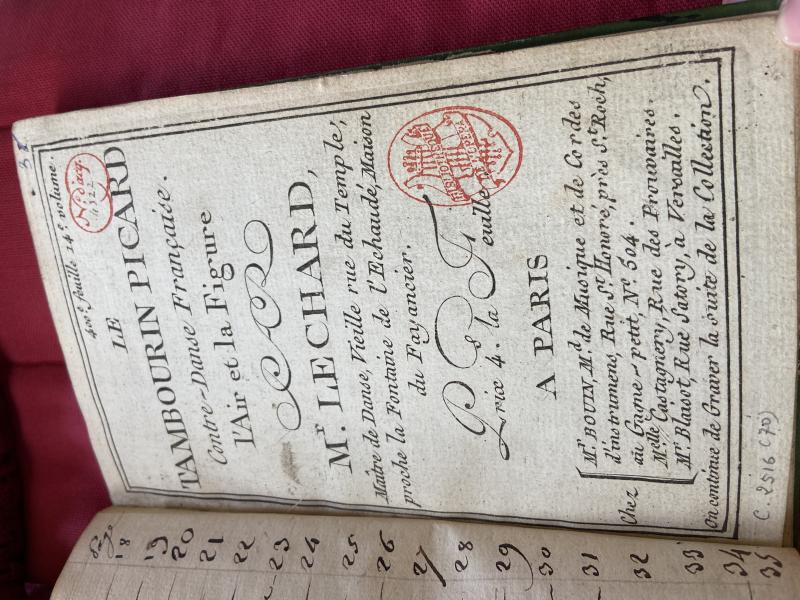 400.e feuille 14.e volume.
LE
TAMBOURIN PICARD
Contre-Danse Française.
l'Air et la Figure
PAR
Mr. LECHARD,
Maitre de Danse, Vieille rue du Temple,
proche la Fontaine de l'Echaudé, Maison
du Fayancier.
Prix 4.s la Feuille
A PARIS
Chez
Mr. BOUIN, M.d de Musique et de Cordes
d'instrumens, Rue St. Honoré, près St. Roch,
au Gagne-petit, No. 504.
Melle Castagnery, Rue des Prouvaires.
Mr. Blaisot, Rue Satory, à Versailles.
On continue de Graver la suite de la Collection.
C. 2516 (70)
18
19
20
21
22
23
24
25
26
27
28
29
30
31
32
33
34
35